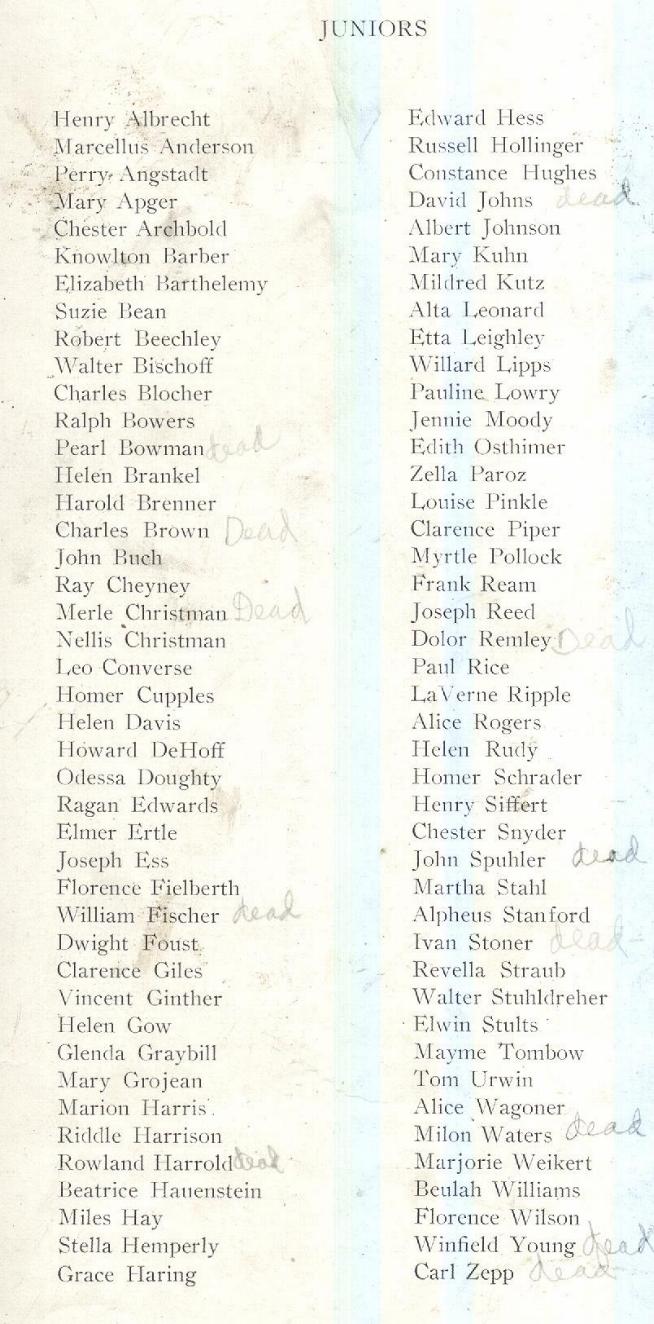 JUNIORS
Henry Albrecht
Marcellus Anderson
Perry Angstadt
Mary Apger
Chester Archbold
Knowlton Barber
Elizabeth Barthelemy
Suzie Bean
Robert Beechley
Walter Bischoff
Charles Blocher
Ralph Bowers
Pearl Bowman dead
Helen Brankel
Harold Brenner
Charles Brown Dead
John Buch
Ray Cheyney
Merle Christman Dead
Nellis Christman
Leo Converse
Homer Cupples
Helen Davis
Howard DeHoff
Odessa Doughty
Ragan Edwards
Elmer Ertle
Joseph Ess
Florence Fielberth
William Fischer dead
Dwight Foust
Clarence Giles
Vincent Ginther
Helen Gow
Glenda Graybill
Mary Grojean
Marion Harris
Riddle Harrison
Rowland Harrold dead
Beatrice Hauenstein
Miles Hay
Stella Hemperly
Grace Haring
Edward Hess
Russell Hollinger
Constance Hughes
David Johns dead
Albert Johnson
Mary Kuhn
Mildred Kutz
Alta Leonard
Etta Leighley
Willard Lipps
Pauline Lowry
Jennie Moody
Edith Osthimer
Zella Paroz
Louise Pinkle
Clarence Piper
Myrtle Pollock
Frank Ream
Joseph Reed
Dolor Remley Dead
Paul Rice
LaVerne Ripple
Alice Rogers
Helen Rudy
Homer Schrader
Henry Siffert
Chester Snyder
John Spuhler dead
Martha Stahl
Alpheus Stanford
Ivan Stoner dead
Revella Straub
Walter Stuhldreher
Elwin Stults
Mayme Tombow
Tom Urwin
Alice Wagoner
Milon Waters dead
Marjorie Weikert
Beulah Williams
Florence Wilson
Winfield Young dead
Carl Zepp dead